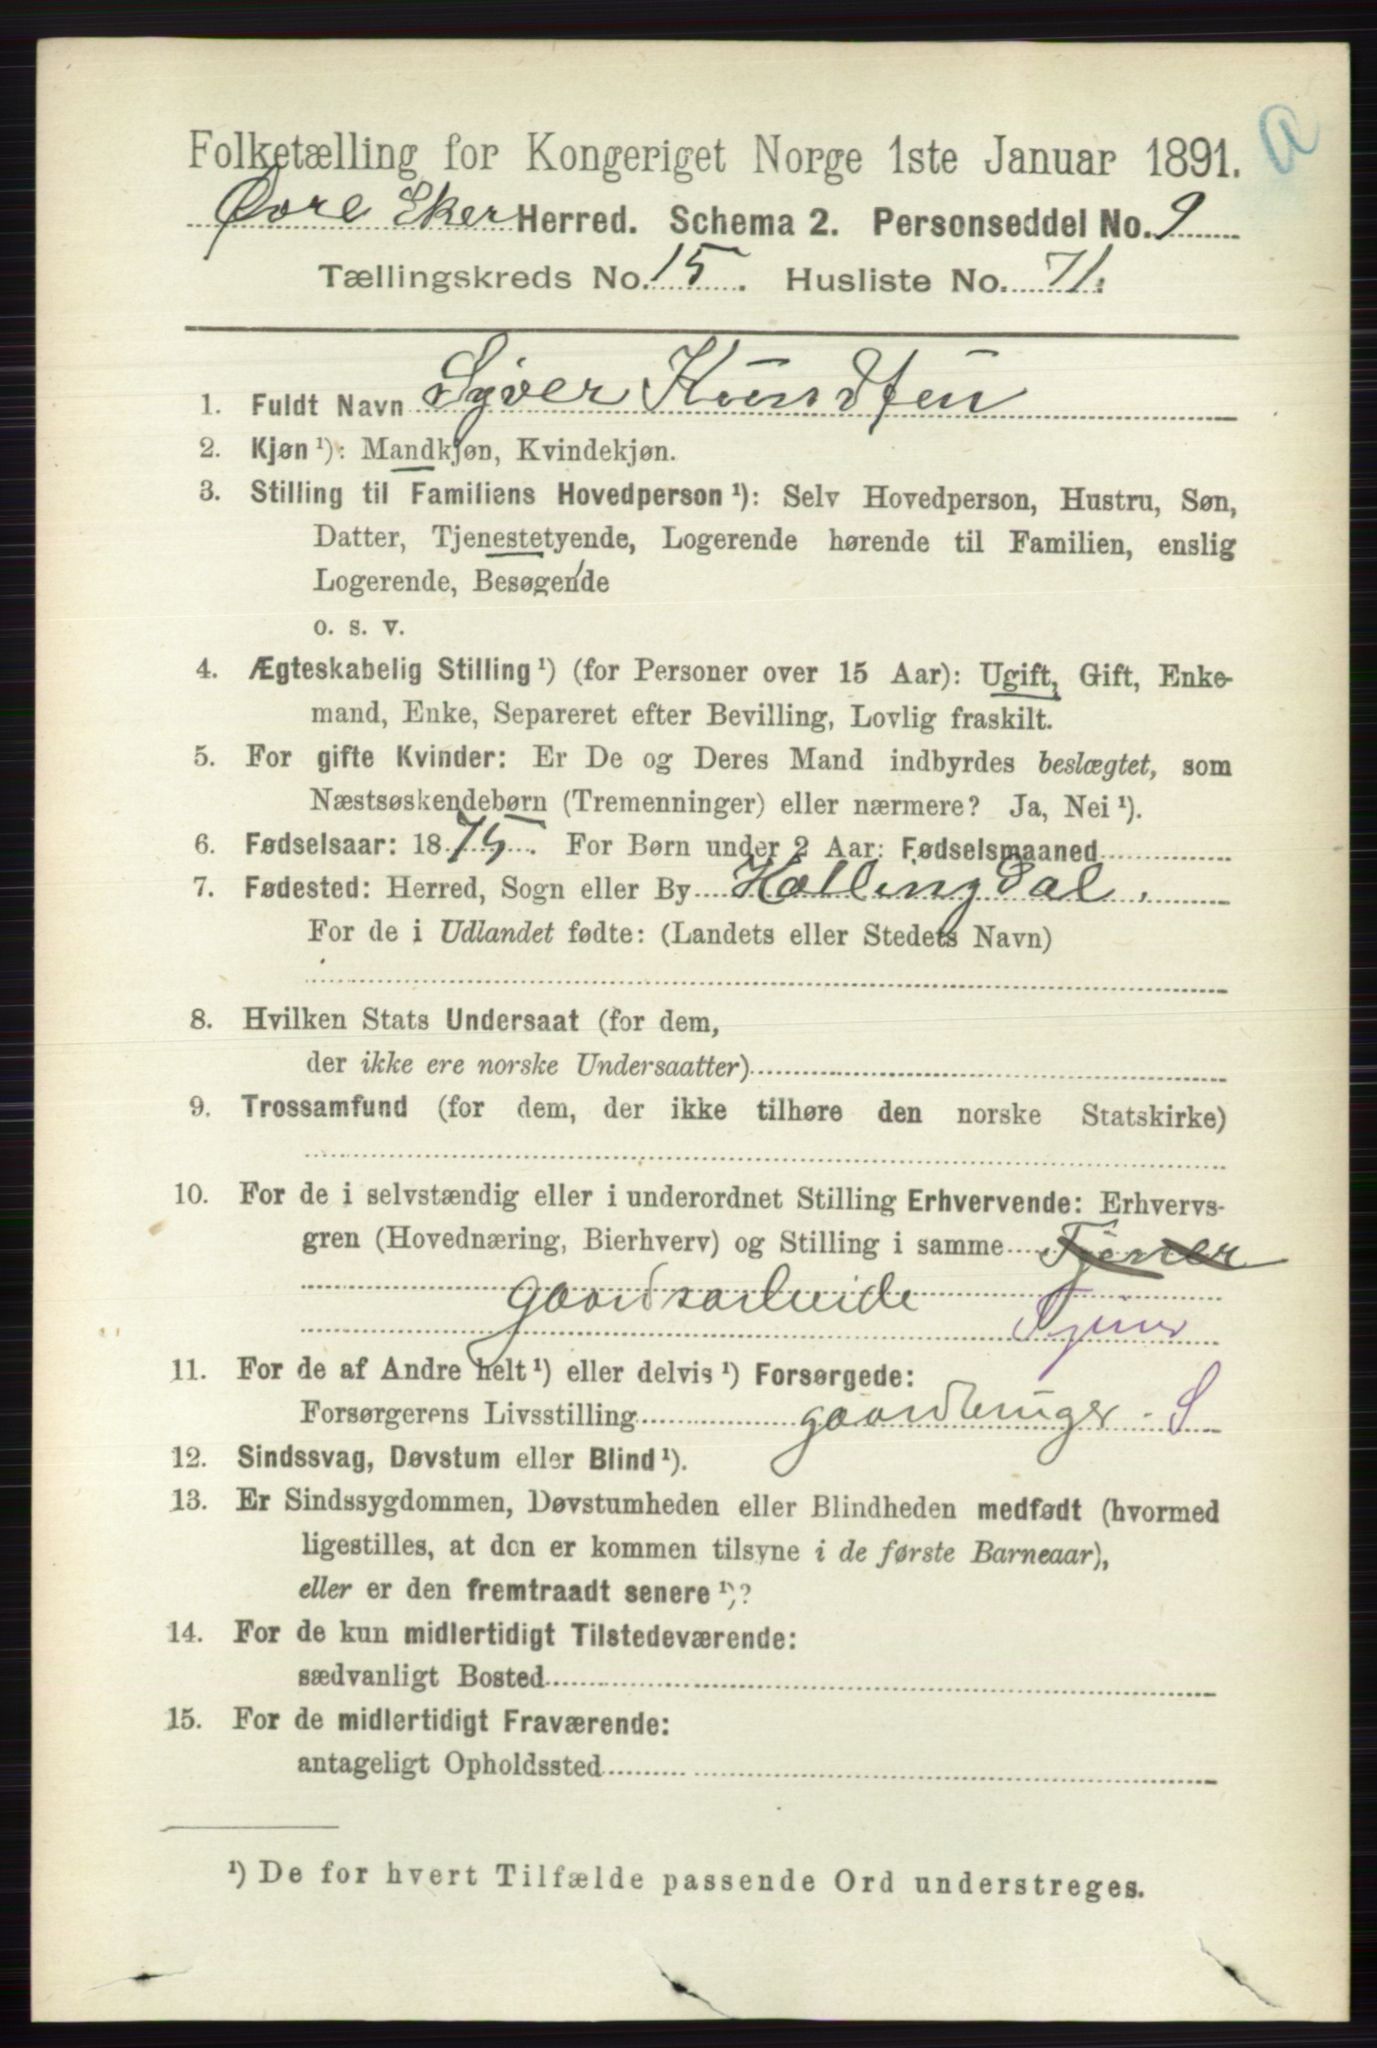 a
Folketælling for Kongeriget Norge 1ste Januar 1891.
Øvre Eker Herred. Schema 2. Personseddel No. 9
Tællingskreds No. 15. Husliste No. 71.
1. Fuldt Navn Syver Knudsen
2. Kjøn ¹): Mandkjøn, Kvindekjøn.
3. Stilling til Familiens Hovedperson ¹): Selv Hovedperson, Hustru, Søn,
Datter, Tjenestetyende, Logerende hørende til Familien, enslig
Logerende, Besøgende
o. s. v.
4. Ægteskabelig Stilling ¹) (for Personer over 15 Aar): Ugift, Gift, Enke-
mand, Enke, Separeret efter Bevilling, Lovlig fraskilt.
5. For gifte Kvinder: Er De og Deres Mand indbyrdes beslægtet, som
Næstsøskendebørn (Tremenninger) eller nærmere? Ja, Nei ¹).
6. Fødselsaar: 1875. For Børn under 2 Aar: Fødselsmaaned
7. Fødested: Herred, Sogn eller By Hallingdal.
For de i Udlandet fødte: (Landets eller Stedets Navn)
8. Hvilken Stats Undersaat (for dem,
der ikke ere norske Undersaatter)
9. Trossamfund (for dem, der ikke tilhøre den norske Statskirke)
10. For de i selvstændig eller i underordnet Stilling Erhvervende: Erhvervs-
gren (Hovednæring, Bierhverv) og Stilling i samme Tjener
gaardsarbeide Tjener
11. For de af Andre helt ¹) eller delvis ¹) Forsørgede:
Forsørgerens Livsstilling gaardbruger - S
12. Sindssvag, Døvstum eller Blind ¹).
13. Er Sindssygdommen, Døvstumheden eller Blindheden medfødt (hvormed
ligestilles, at den er kommen tilsyne i de første Barneaar),
eller er den fremtraadt senere ¹)?
14. For de kun midlertidigt Tilstedeværende:
sædvanligt Bosted
15. For de midlertidigt Fraværende:
antageligt Opholdssted
¹) De for hvert Tilfælde passende Ord understreges.